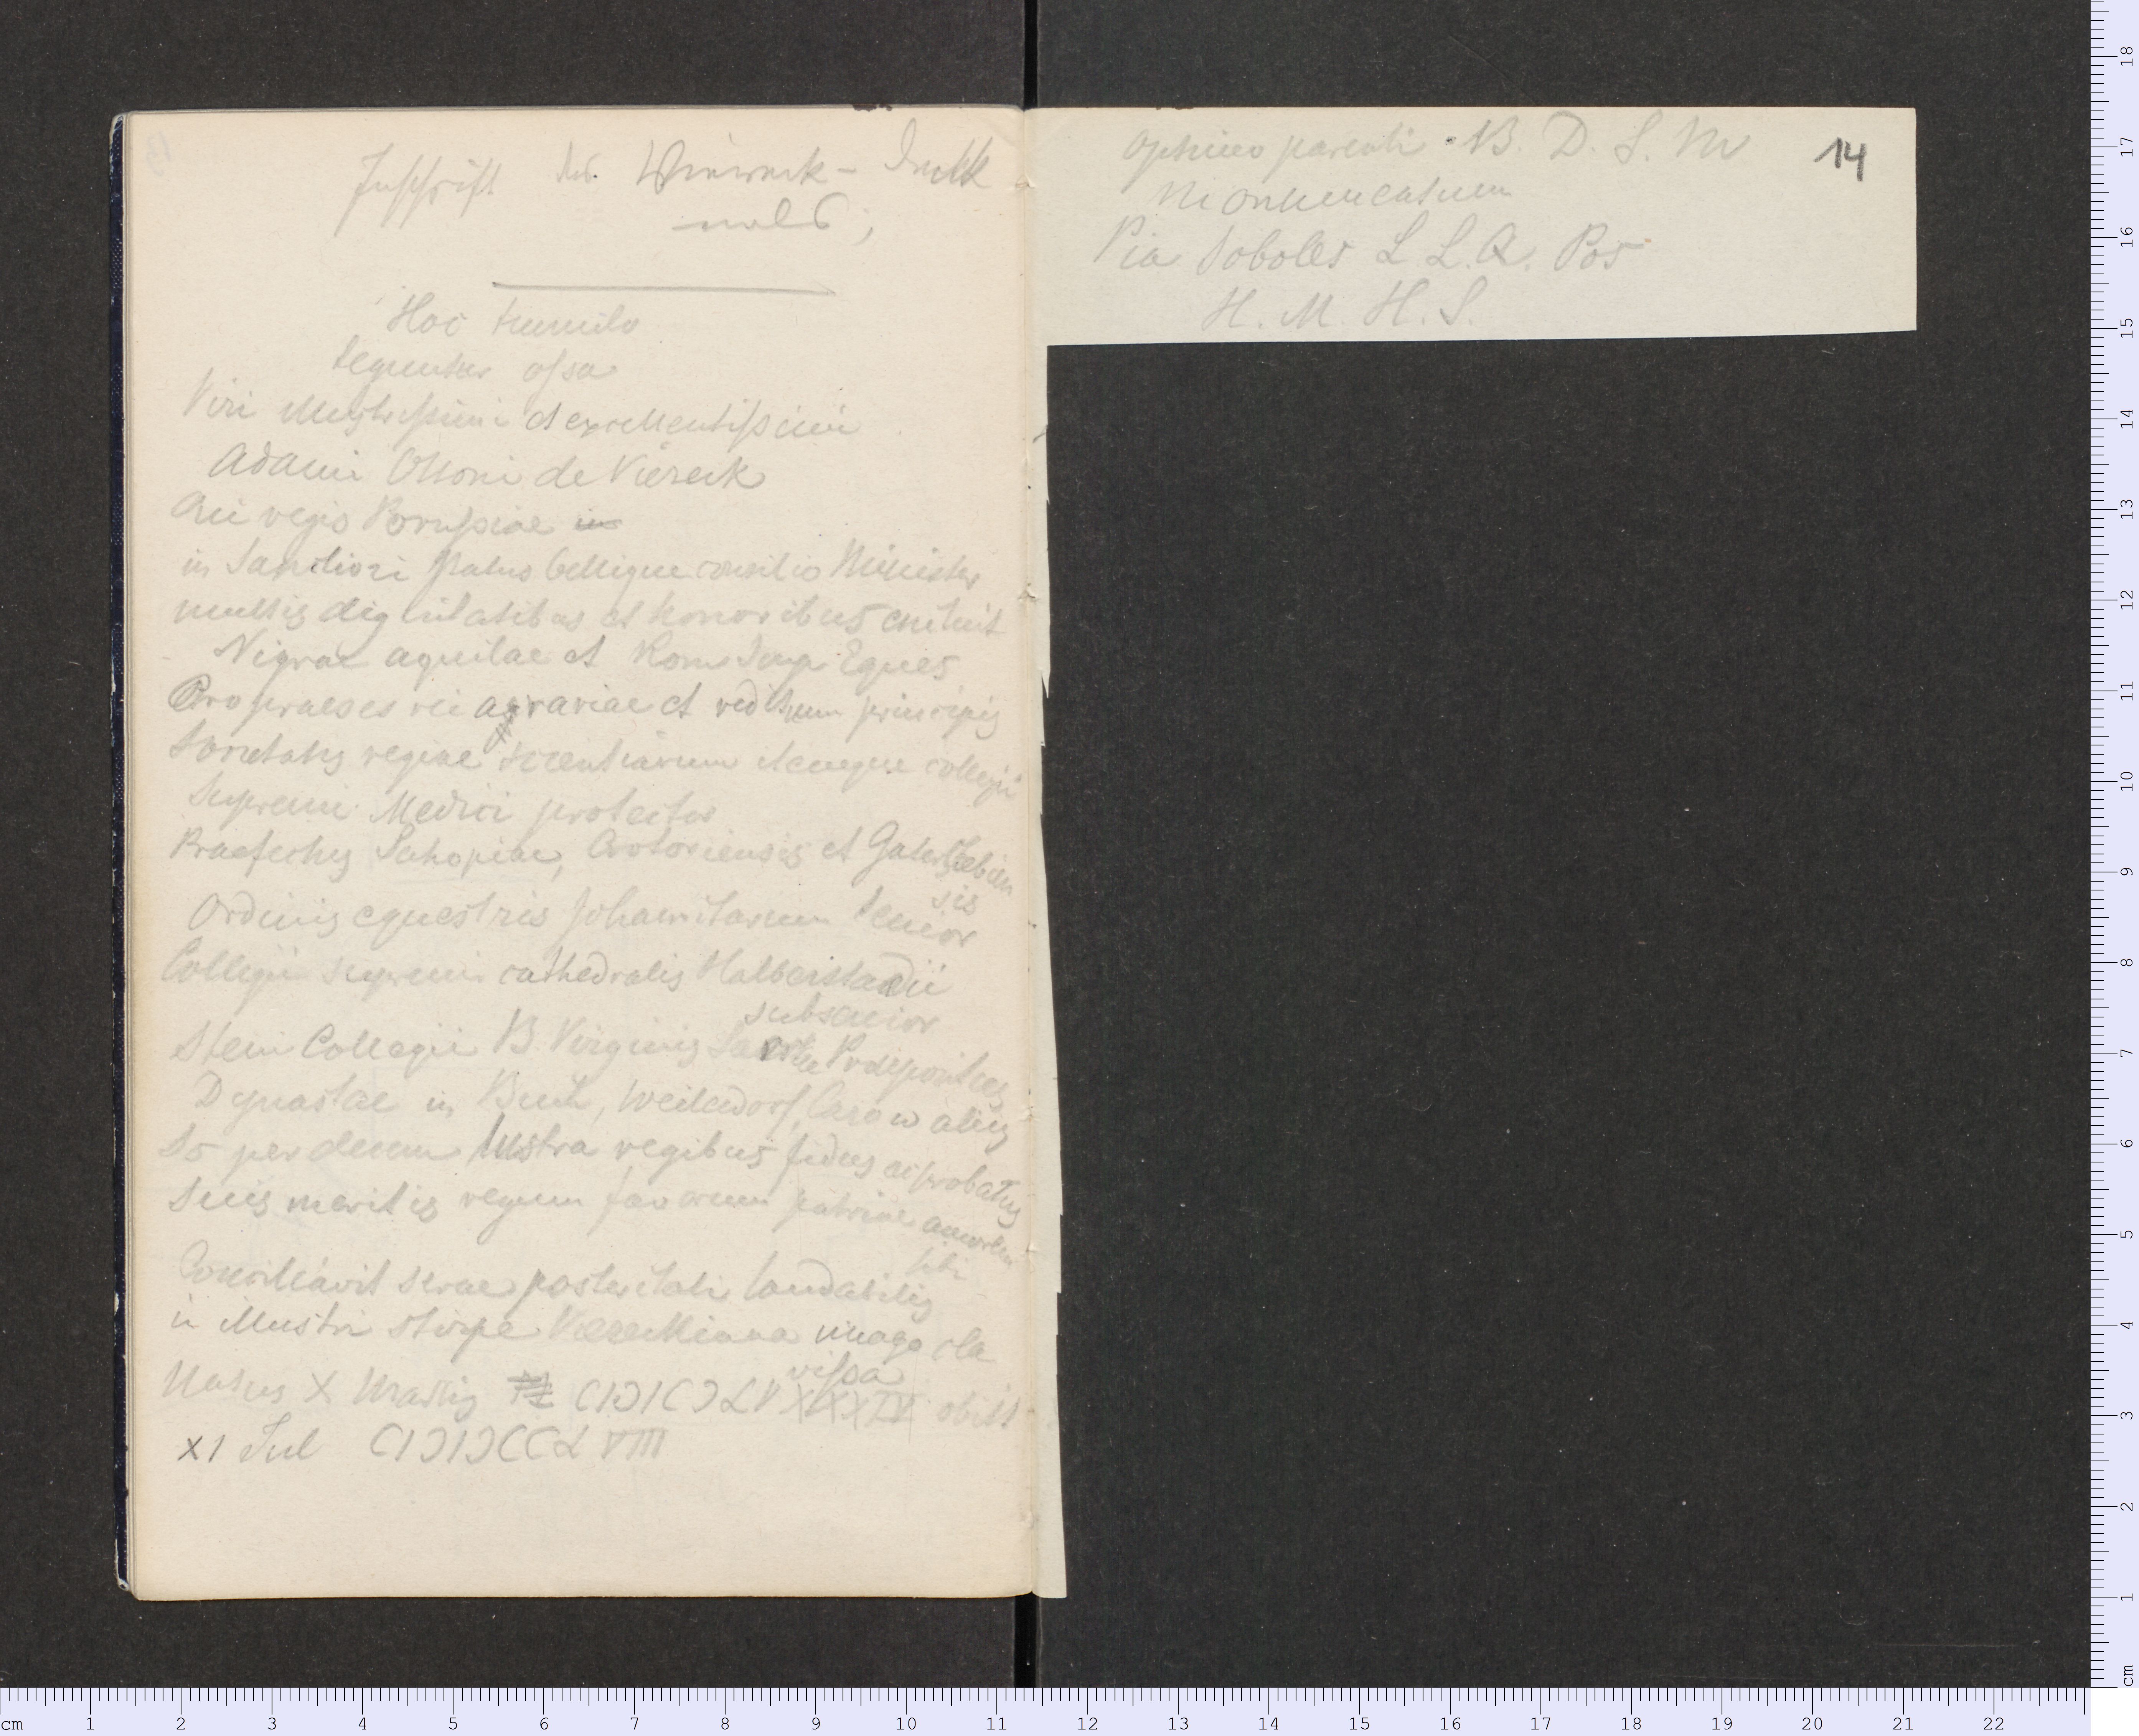 Inschrift des Viereck-Denk
mals;
Hoc tumulo
teguntur ossa
Viri illustrissimi et excellentissimi
Adami Ottoni de Viereck
Qui regis Borussiae in
in Sanctiori status bellique consilio Minister
multis dignitatibus et honoribus enituit
Nigrae aquilae et Eques
Propraeses rei agrariae et redituum principis
Societatis regiae scientiarum itemque collegii
Supremi Medici protector
Praefectus et Gaterslebien
sis
Ordinis equestris Johannitarum Senior
Collegii supremi cathedralis Halberstadii
subsenior
Item Collegii B Virginis Praepositus
Dynastae in Buch, Carow aliis
Is per decem lustra regibus fidus ac probatus
Suis meritis regum favorem patriae amorem
sibi
Conciliavit serae posteritati laudabilis
in illustri stirpe Viereckiana imago cla
rissa
Natus X Martis CIƆIƆLVXXXIV obiit
XI Jul CIƆIƆCCLVIII
Optimo parenti B. D. S. M
Monumentum
Pia Soboles L. L. Q. Pos
H. M. H. S.
14